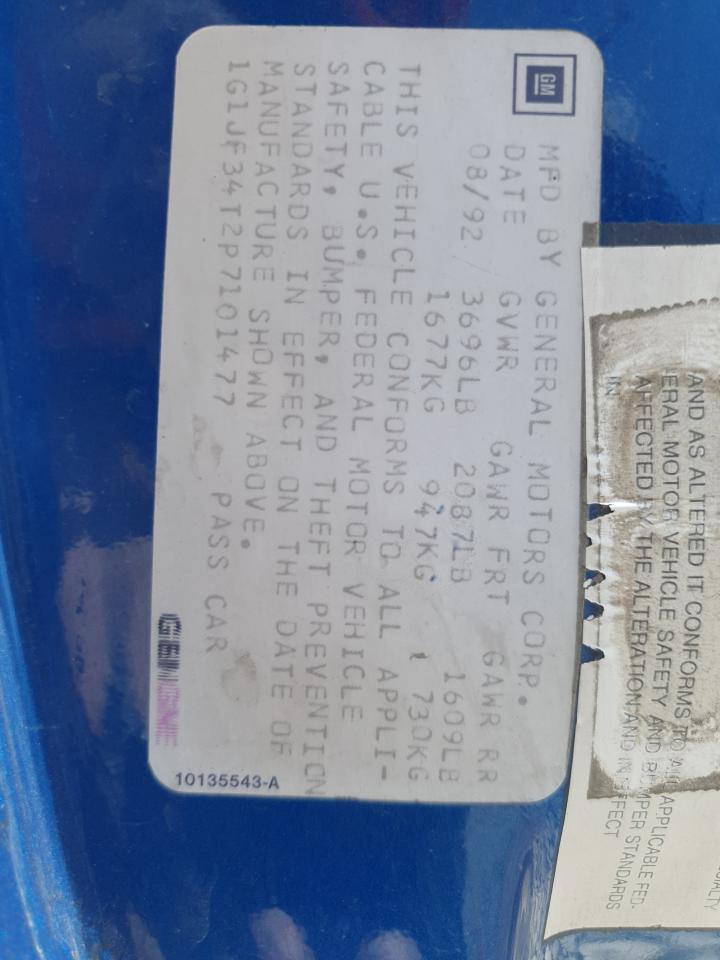 GM
MFD BY GENERAL MOTORS CORP.
DATE GVWR GAWR FRT GAWR RR
08/92 3696LB 2087LB 1609LB
1677KG 947KG 730KG
THIS VEHICLE CONFORMS TO ALL APPLI-
CABLE U.S. FEDERAL MOTOR VEHICLE
SAFETY, BUMPER, AND THEFT PREVENTION
STANDARDS IN EFFECT ON THE DATE OF
MANUFACTURE SHOWN ABOVE.
1G1JF34T2P7101477 PASS CAR
10135543-A
AND AS ALTERED IT CONFORMS TO ALL APPLICABLE FED-
ERAL MOTOR VEHICLE SAFETY AND BUMPER STANDARDS
AFFECTED BY THE ALTERATION AND IN EFFECT
IN